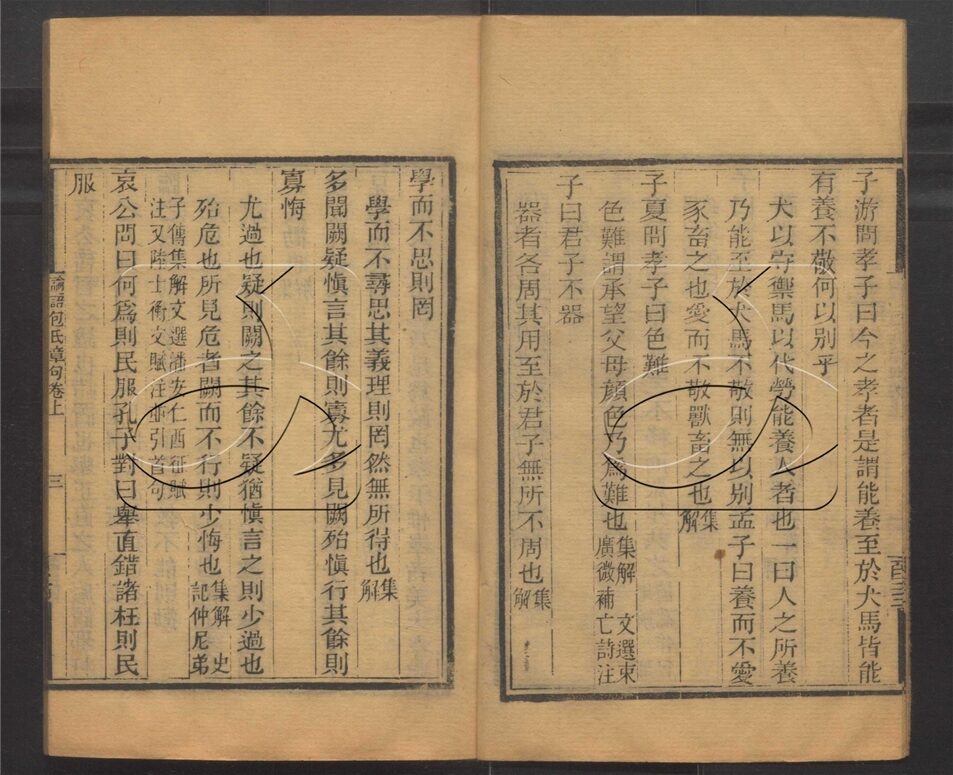 子游問孝子曰今之孝者是謂能養至於犬馬皆能
有養不敬何以別乎
犬以守禦馬以代勞能養人者也一曰人之所養
乃能至於犬馬不敬則無以別孟子曰養而不愛
豕畜之也愛而不敬獸畜之也集解
子夏問孝子曰色難
色難謂承望父母顏色乃為難也集解 文選束
廣微補亡詩注
子曰君子不器
器者各周其用至於君子無所不周也集解
學而不思則罔
學而不尋思其義理則罔然無所得也集解
多聞闕疑慎言其餘則寡尤多見闕殆慎行其餘則
寡悔
尤過也疑則闕之其餘不疑猶慎言之則少過也
殆危也所見危者闕而不行則少悔也集解 史
記仲尼弟
子傳集解文選潘安仁西征賦
注又陸士衡文賦注並引首句
哀公問曰何為則民服孔子對曰舉直錯諸枉則民
服
論語包氏章句卷上
三